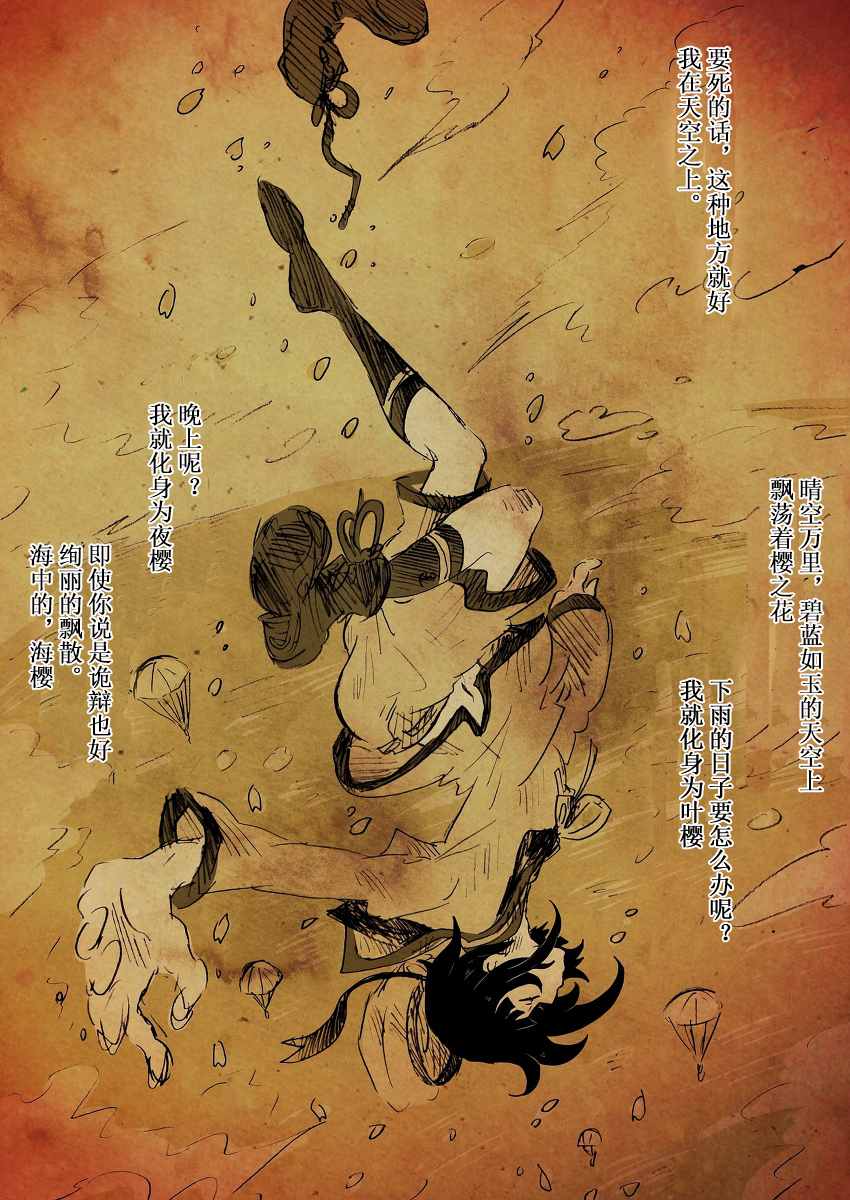 要死的话，这种地方就好
我在天空之上。
晴空万里，碧蓝如玉的天空上
飘荡着樱之花
下雨的日子要怎么办呢？
我就化身为叶樱
晚上呢？
我就化身为夜樱
即使你说是诡辩也好
绚丽的飘散。
海中的，海樱